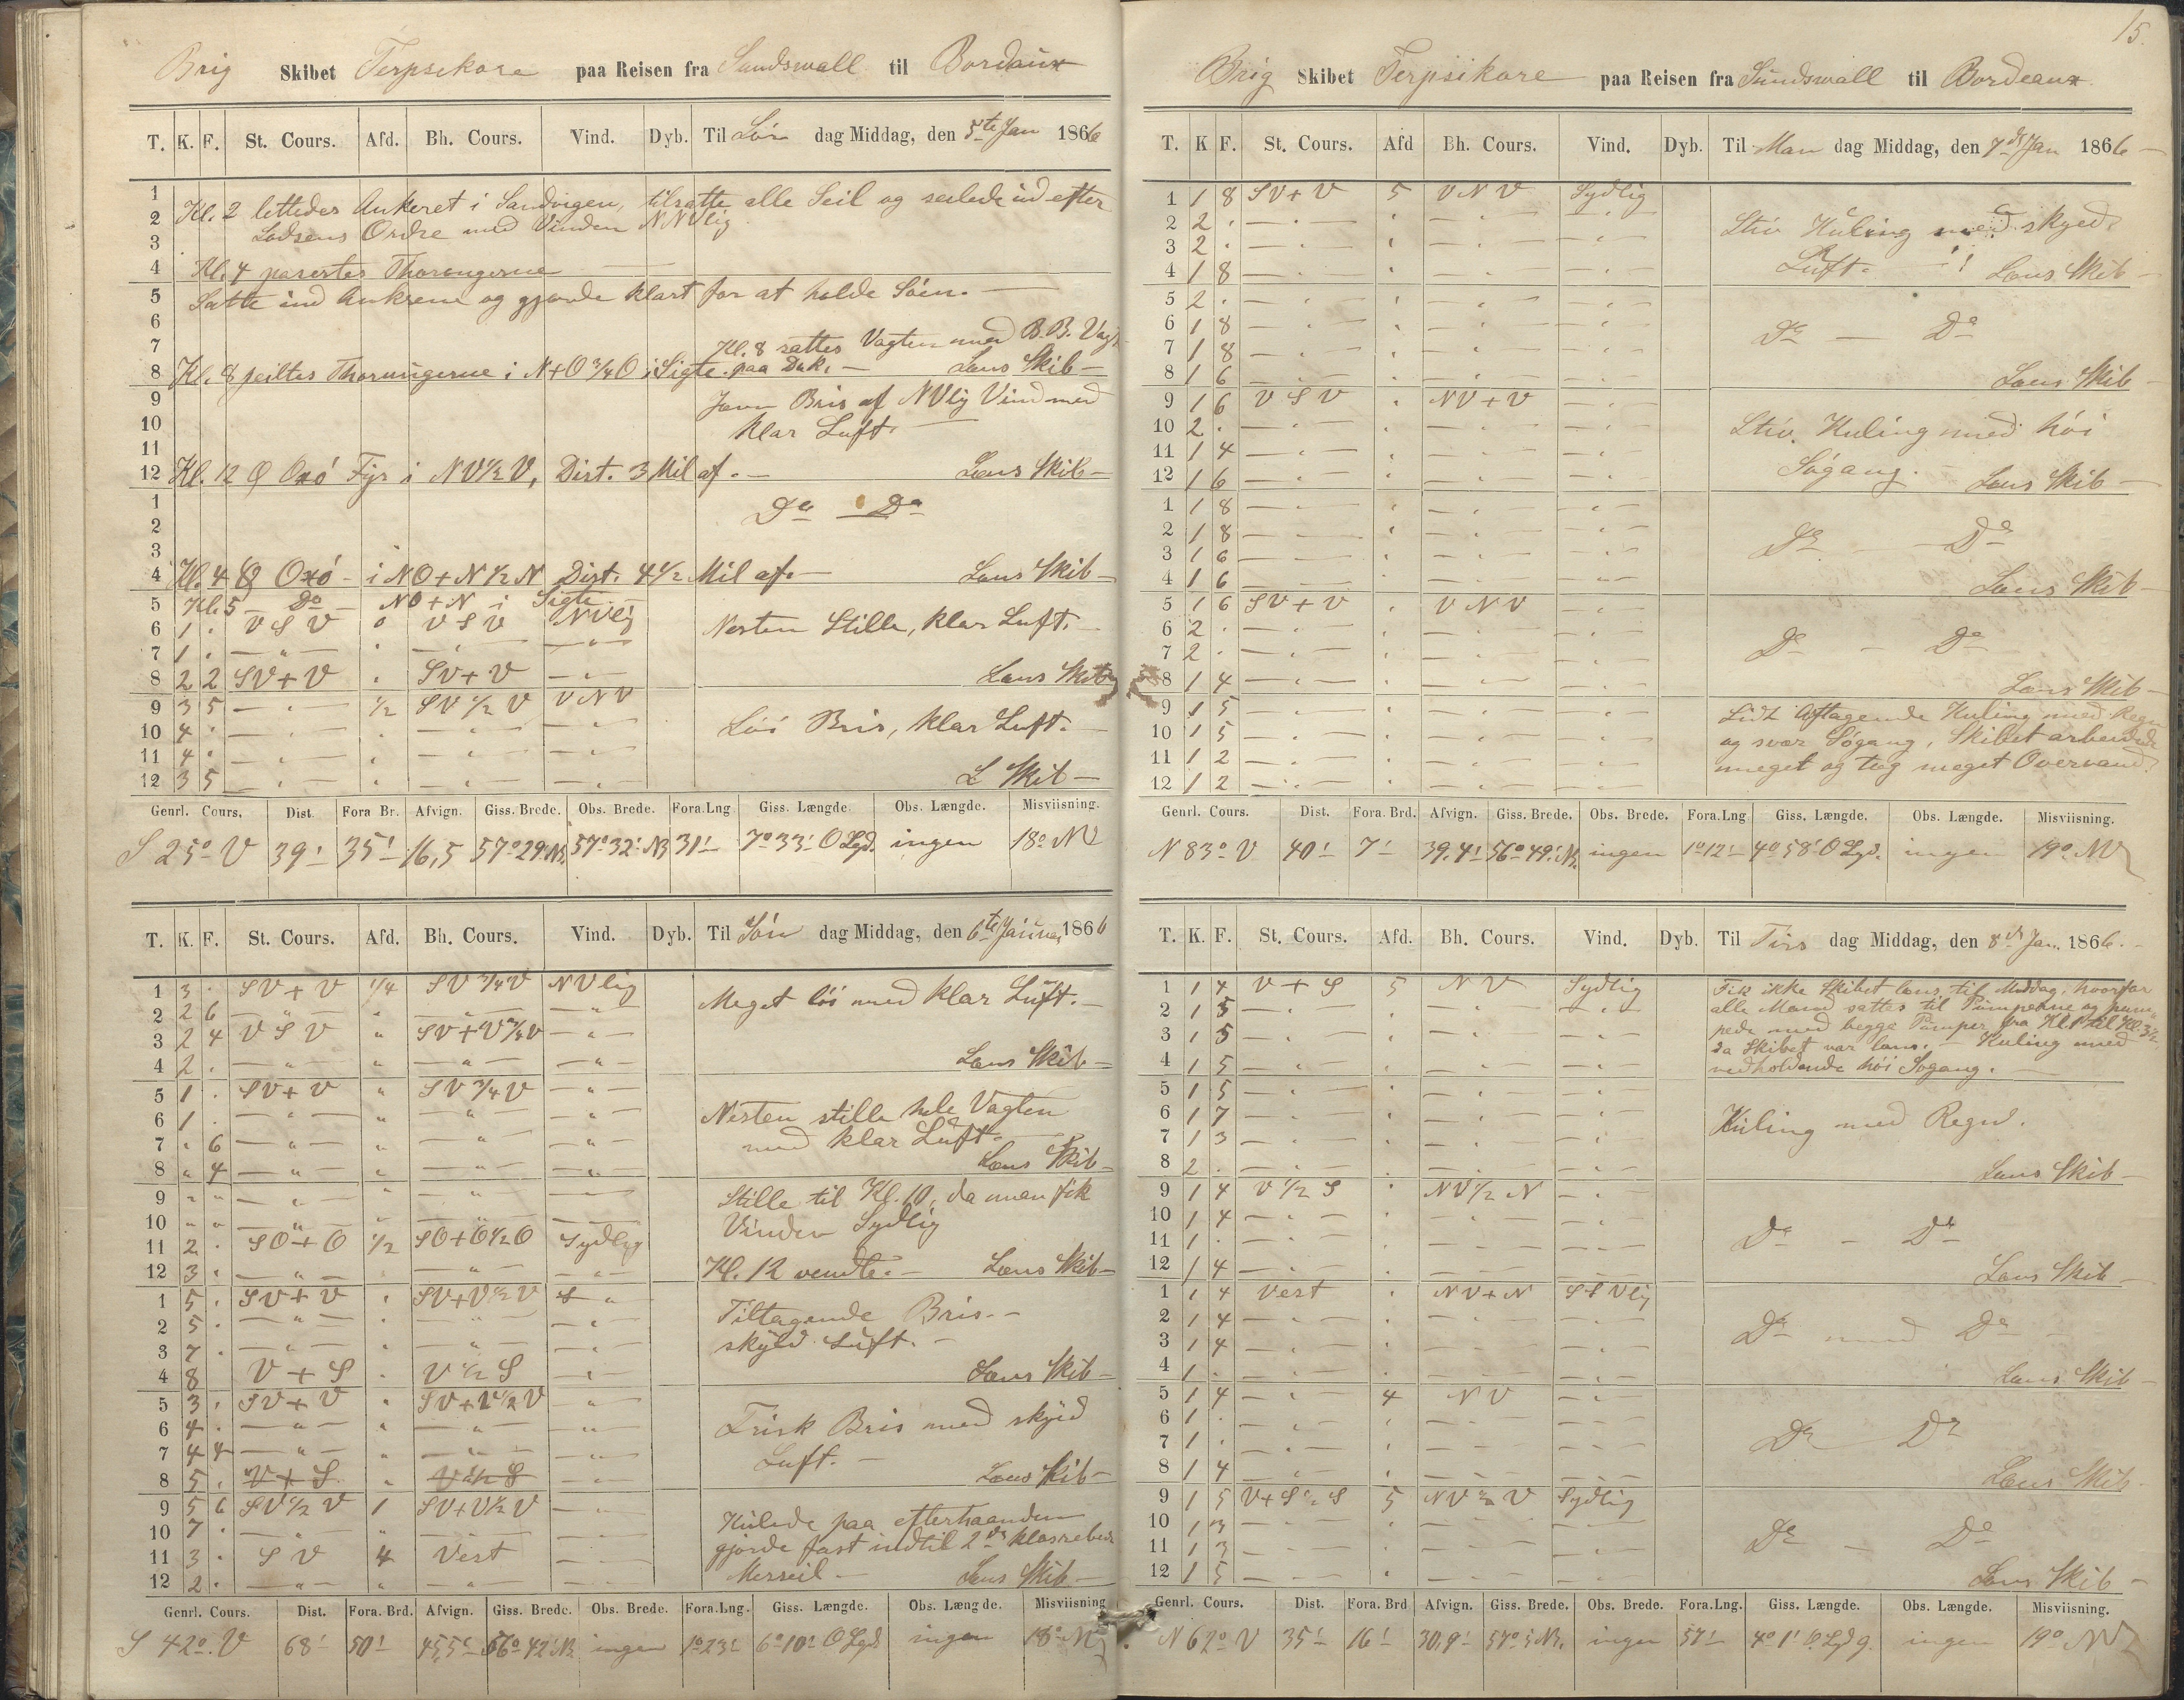 Brig Skibet Terpsekore paa Reisen fra Sundswall til Bordaux
T. K. F. St. Cours. Afd. Bh. Cours. Vind. Dyb. Til Lør dag Middag, den 5te Jan 1866
1
2 Kl. 2 lettedes Ankeret i Sandvigen, tilsatte alle Seil og seilede ud efter
3 Lodsens Ordre med Vinden NNVlig
4 Kl. 4 pasertes Thorungerne
5 Satte ind Ankrene og gjorde klart for at holde Søen.
6
7 Kl. 8 sattes Vagten med B.B. Vagt
8 Kl. 8 peiltes Thorungerne i N+O 3/4 O i Sigte paa Dæk. Læns Skib
9 Jevn Bris af NVlig Vind med
10 klar Luft.
11
12 Kl. 12 Oxö Fyr i NV 1/2 V, Dist. 3 Mil af. Læns Skib
1 Do Do
2
3
4 Kl. 4 Oxö i NO+N 1/2 N Dist. 4 1/2 Mil af. Læns Skib
5 Kl. 5 Do NO+N i Sigte
6 1 . V S V 0 V S V NVlig Nesten Stille, klar Luft.
7 1 . — " — " — " — — " —
8 2 2 SV+V . SV+V — " — Læns Skib
9 3 5 — " — 1/2 SV 1/2 V VNV
10 4 . — " — . — " — — " — Løi Bris, klar Luft.
11 4 . — " — . — " — — " —
12 3 5 — " — . — " — — " — L Skib
Genrl. Cours. Dist. Fora Br. Afvign. Giss. Brede. Obs. Brede. Fora.Lng. Giss. Længde. Obs. Længde. Misviisning.
S 25° V 39' 35' 16,5 57° 29' N. 57° 32' N 31' 7° 33' O Lgd. ingen 18° NV
T. K. F. St. Cours. Afd. Bh. Cours. Vind. Dyb. Til Søn dag Middag, den 6te Januar 1866
1 3 . SV+V 1/4 SV 3/4 V NVlig Meget løi med klar Luft.
2 2 6 — " — " — " — — " —
3 2 4 V S V " SV+V 3/4 V — " —
4 2 . — " — " — " — — " — Læns Skib
5 1 . SV+V " SV 3/4 V — " —
6 1 . — " — " — " — — " — Nesten stille hele Vagten
7 " 6 — " — " — " — — " — med klar Luft.
8 " 4 — " — " — " — — " — Læns Skib
9 " " — " — " — " — — Stille til Kl. 10, da man fik
10 " " — " — " — " — — Vinden Sydlig
11 2 . SO+O 1/2 SO+O 1/2 O Sydlig
12 3 . — " — . — " — — " — Kl. 12 vendte. Læns Skib
1 5 . SV+V . SV+V 1/2 V S " Tiltagende Bris.
2 5 . — " — . — " — — " —
3 7 . — " — . — " — — " — skyed Luft.
4 8 V+S . V 1/2 S — " — Læns Skib
5 3 . SV+V . SV+V 1/2 V — " —
6 4 . — " — " — " — — " — Frisk Bris med skyed
7 4 4 — " — " — " — — " — Luft.
8 5 . V+S " V 1/2 S — " — Læns Skib
9 5 6 SV 1/2 V 1 SV+V 1/2 V — " — Kulede paa efterhaanden
10 7 . — " — " — " — — " — gjorde fast indtil 2de klosrebede
11 3 . S V 4 Vest — " —
12 2 . — " — " — " — — " — Merseil Læns Skib
Genrl. Cours. Dist. Fora. Brd. Afvign. Giss. Brede. Obs. Brede. Fora.Lng. Giss. Længde. Obs. Længde. Misviisning
S 42° V 68' 50' 45,5' 56° 42' N. ingen 1° 23' 6° 10' O Lgd ingen 18° NV
15.
Brig Skibet Terpsikore paa Reisen fra Sundswall til Bordeaux
T. K F. St. Cours. Afd Bh. Cours. Vind. Dyb. Til Man dag Middag, den 7de Jan 1866
1 1 8 SV+V 5 V N V Sydlig
2 2 . — " — . — " — — " — Stiv Kuling med skyed
3 2 . — " — . — " — — " —
4 1 8 — " — . — " — — " — Luft. Læns Skib
5 2 . — " — . — " — — " —
6 1 8 — " — . — " — — " — Do — Do
7 1 8 — " — . — " — — " —
8 1 6 — " — . — " — — " — Læns Skib
9 1 6 V S V . NV+V — " —
10 2 . — " — . — " — — " — Stiv Kuling med høi
11 1 4 — " — . — " — — " —
12 1 6 — " — . — " — — " — Søgang. Læns Skib
1 1 8 — " — . — " — — " —
2 1 8 — " — . — " — — " — Do — Do
3 1 6 — " — . — " — — " —
4 1 6 — " — . — " — — " — Læns Skib
5 1 6 SV+V . V N V — " —
6 2 . — " — . — " — — " — Do — Do
7 2 . — " — . — " — — " —
8 1 4 — " — . — " — — " — Læns Skib
9 1 5 — " — . — " — — " — Lidt Aftagende Kuling med Regn
10 1 5 — " — . — " — — " — og svær Søgang, Skibet arbeidede
11 1 2 — " — . — " — — " — meget og tog meget Overvand.
12 1 2 — " — . — " — — " —
Genrl. Cours. Dist. Fora. Brd. Afvign. Giss. Brede. Obs. Brede. Fora.Lng Giss. Længde. Obs. Længde. Misviisning.
N 83° V 40' 7' 39.4' 56° 49' N. ingen 1° 12' 4° 58' O Lgd. ingen 19° NV
T. K. F. St. Cours. Afd. Bh. Cours. Vind. Dyb. Til Tirs dag Middag, den 8de Jan. 1866.
1 1 4 V+S 5 N V Sydlig Fik ikke Skibet læns til Middag, hvorfor
2 1 5 — " — . — " — — " — alle Mand sattes til Pumperne og pum-
3 1 5 — " — . — " — — " — pede med begge Pumper fra Kl. 1 til Kl. 3 1/2
da Skibet var læns. Kuling med
4 1 5 — " — . — " — — " — vedholdende høi Søgang.
5 1 5 — " — . — " — — " —
6 1 7 — " — . — " — — " — Kuling med Regn.
7 1 3 — " — . — " — — " —
8 2 . — " — . — " — — " — Læns Skib
9 1 4 V 1/2 S . NV 1/2 N — " —
10 1 4 — " — . — " — — " — Do — Do
11 1 . — " — . — " — — " —
12 1 4 — " — . — " — — " — Læns Skib
1 1 4 Vest . NV+N SSVlig
2 1 4 — " — . — " — — " — Do med Do
3 1 4 — " — . — " — — " —
4 1 . — " — . — " — — " — Læns Skib
5 1 4 — " — 4 N V — " —
6 1 . — " — . — " — — " — Do Do
7 1 . — " — . — " — — " —
8 1 4 — " — . — " — — " — Læns Skib
9 1 5 V+S 1/2 S 5 NV 1/2 V Sydlig
10 1 3 — " — . — " — — " — Do — Do
11 1 3 — " — . — " — — " —
12 1 5 — " — . — " — — " — Læns Skib
Genrl. Cours. Dist. Fora. Brd Afvign. Giss. Brede. Obs. Brede. Fora.Lng. Giss. Længde. Obs. Længde. Misviisning.
N 62° V 35' 16' 30,9' 57° 5' N. ingen 57' 4° 1' O. Lgdg. ingen 19° NV